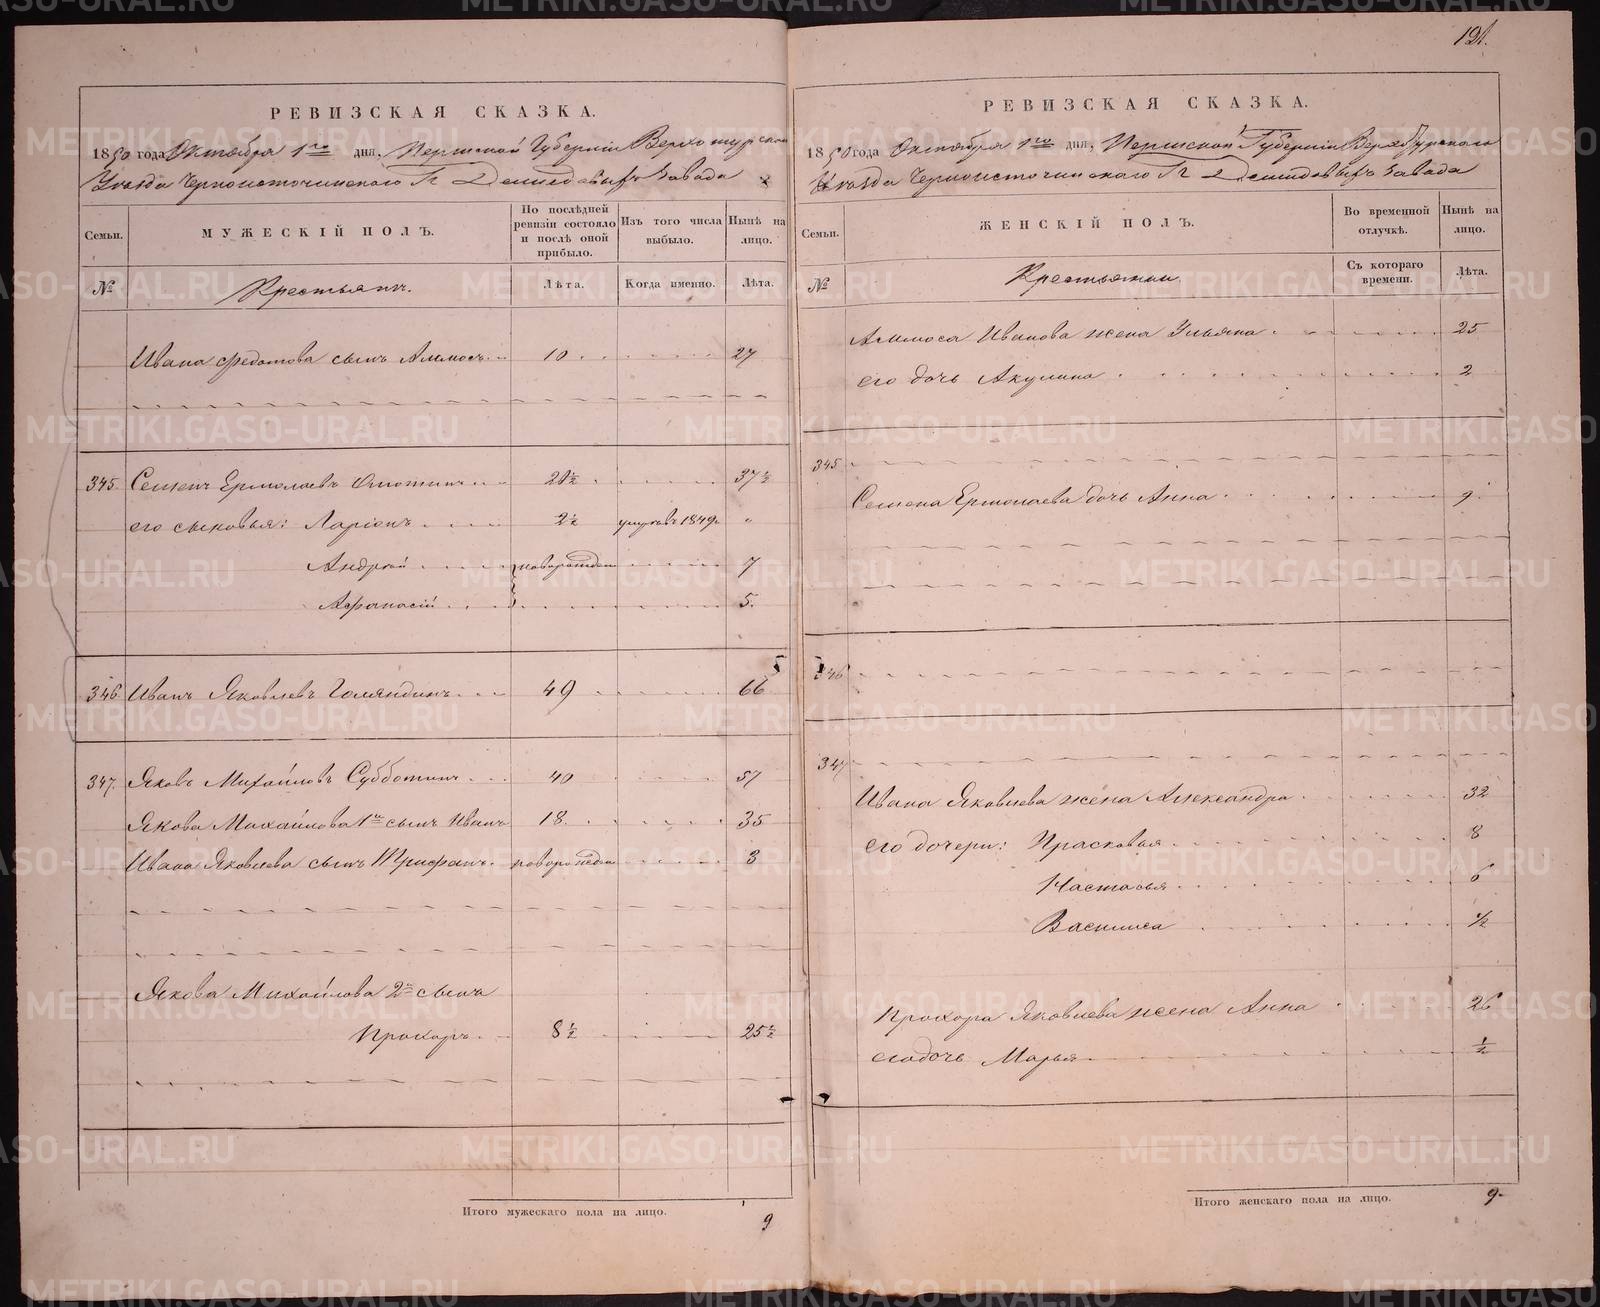 РЕВИЗСКАЯ СКАЗКА.
1850 года Октября 1го дня, Пермской Губерніи Верхотурскаго
Уѣзда Черноисточинскаго Гг Демидовыхъ Завода
Семьи.
МУЖЕСКІЙ ПОЛЪ.
По послѣдней ревизіи состояло и послѣ оной прибыло.
Изъ того числа выбыло.
Нынѣ на лицо.
№
Крестьянъ.
Лѣта.
Когда именно.
Лѣта.
Ивана Федотова сынъ Аммосъ 10 27
345. Семенъ Ермолаевъ 20½ 37½
его сыновья: Ларіонъ 2½ умужъ 1849. "
Андрей новорожден 7
Афонасій 5.
346 Иванъ Яковлевъ Голяндинъ 49 66
347. Яковъ Михайловъ Субботинъ 40 57
Якова Михайлова 1й сынъ Иванъ 18. 35
Ивана Яковлева сынъ Трифанъ новорожден 3
Якова Михайлова 2й сынъ
Прохоръ 8½ 25½
Итого мужескаго пола на лицо. 9
121.
РЕВИЗСКАЯ СКАЗКА.
1850 года Октября 1го дня, Пермской Губерніи Верхотурскаго
Уѣзда Черноисточинскаго Гг Демидовыхъ Завода
Семьи.
ЖЕНСКІЙ ПОЛЪ.
Во временной отлучкѣ.
Нынѣ на лицо.
№
Крестьянки.
Съ котораго времени.
Лѣта.
Аммоса Иванова жена Ульяна 25
его дочь Акулина 2
345
Семена Ермолаева дочь Анна 9
346
347
Ивана Яковлева жена Александра 32
его дочери: Прасковья 8
Настасья 6
Василиса ½
Прохора Яковлева жена Анна 26
его дочь Марья ½
Итого женскаго пола на лицо. 9
METRIKI.GASO-URAL.RU